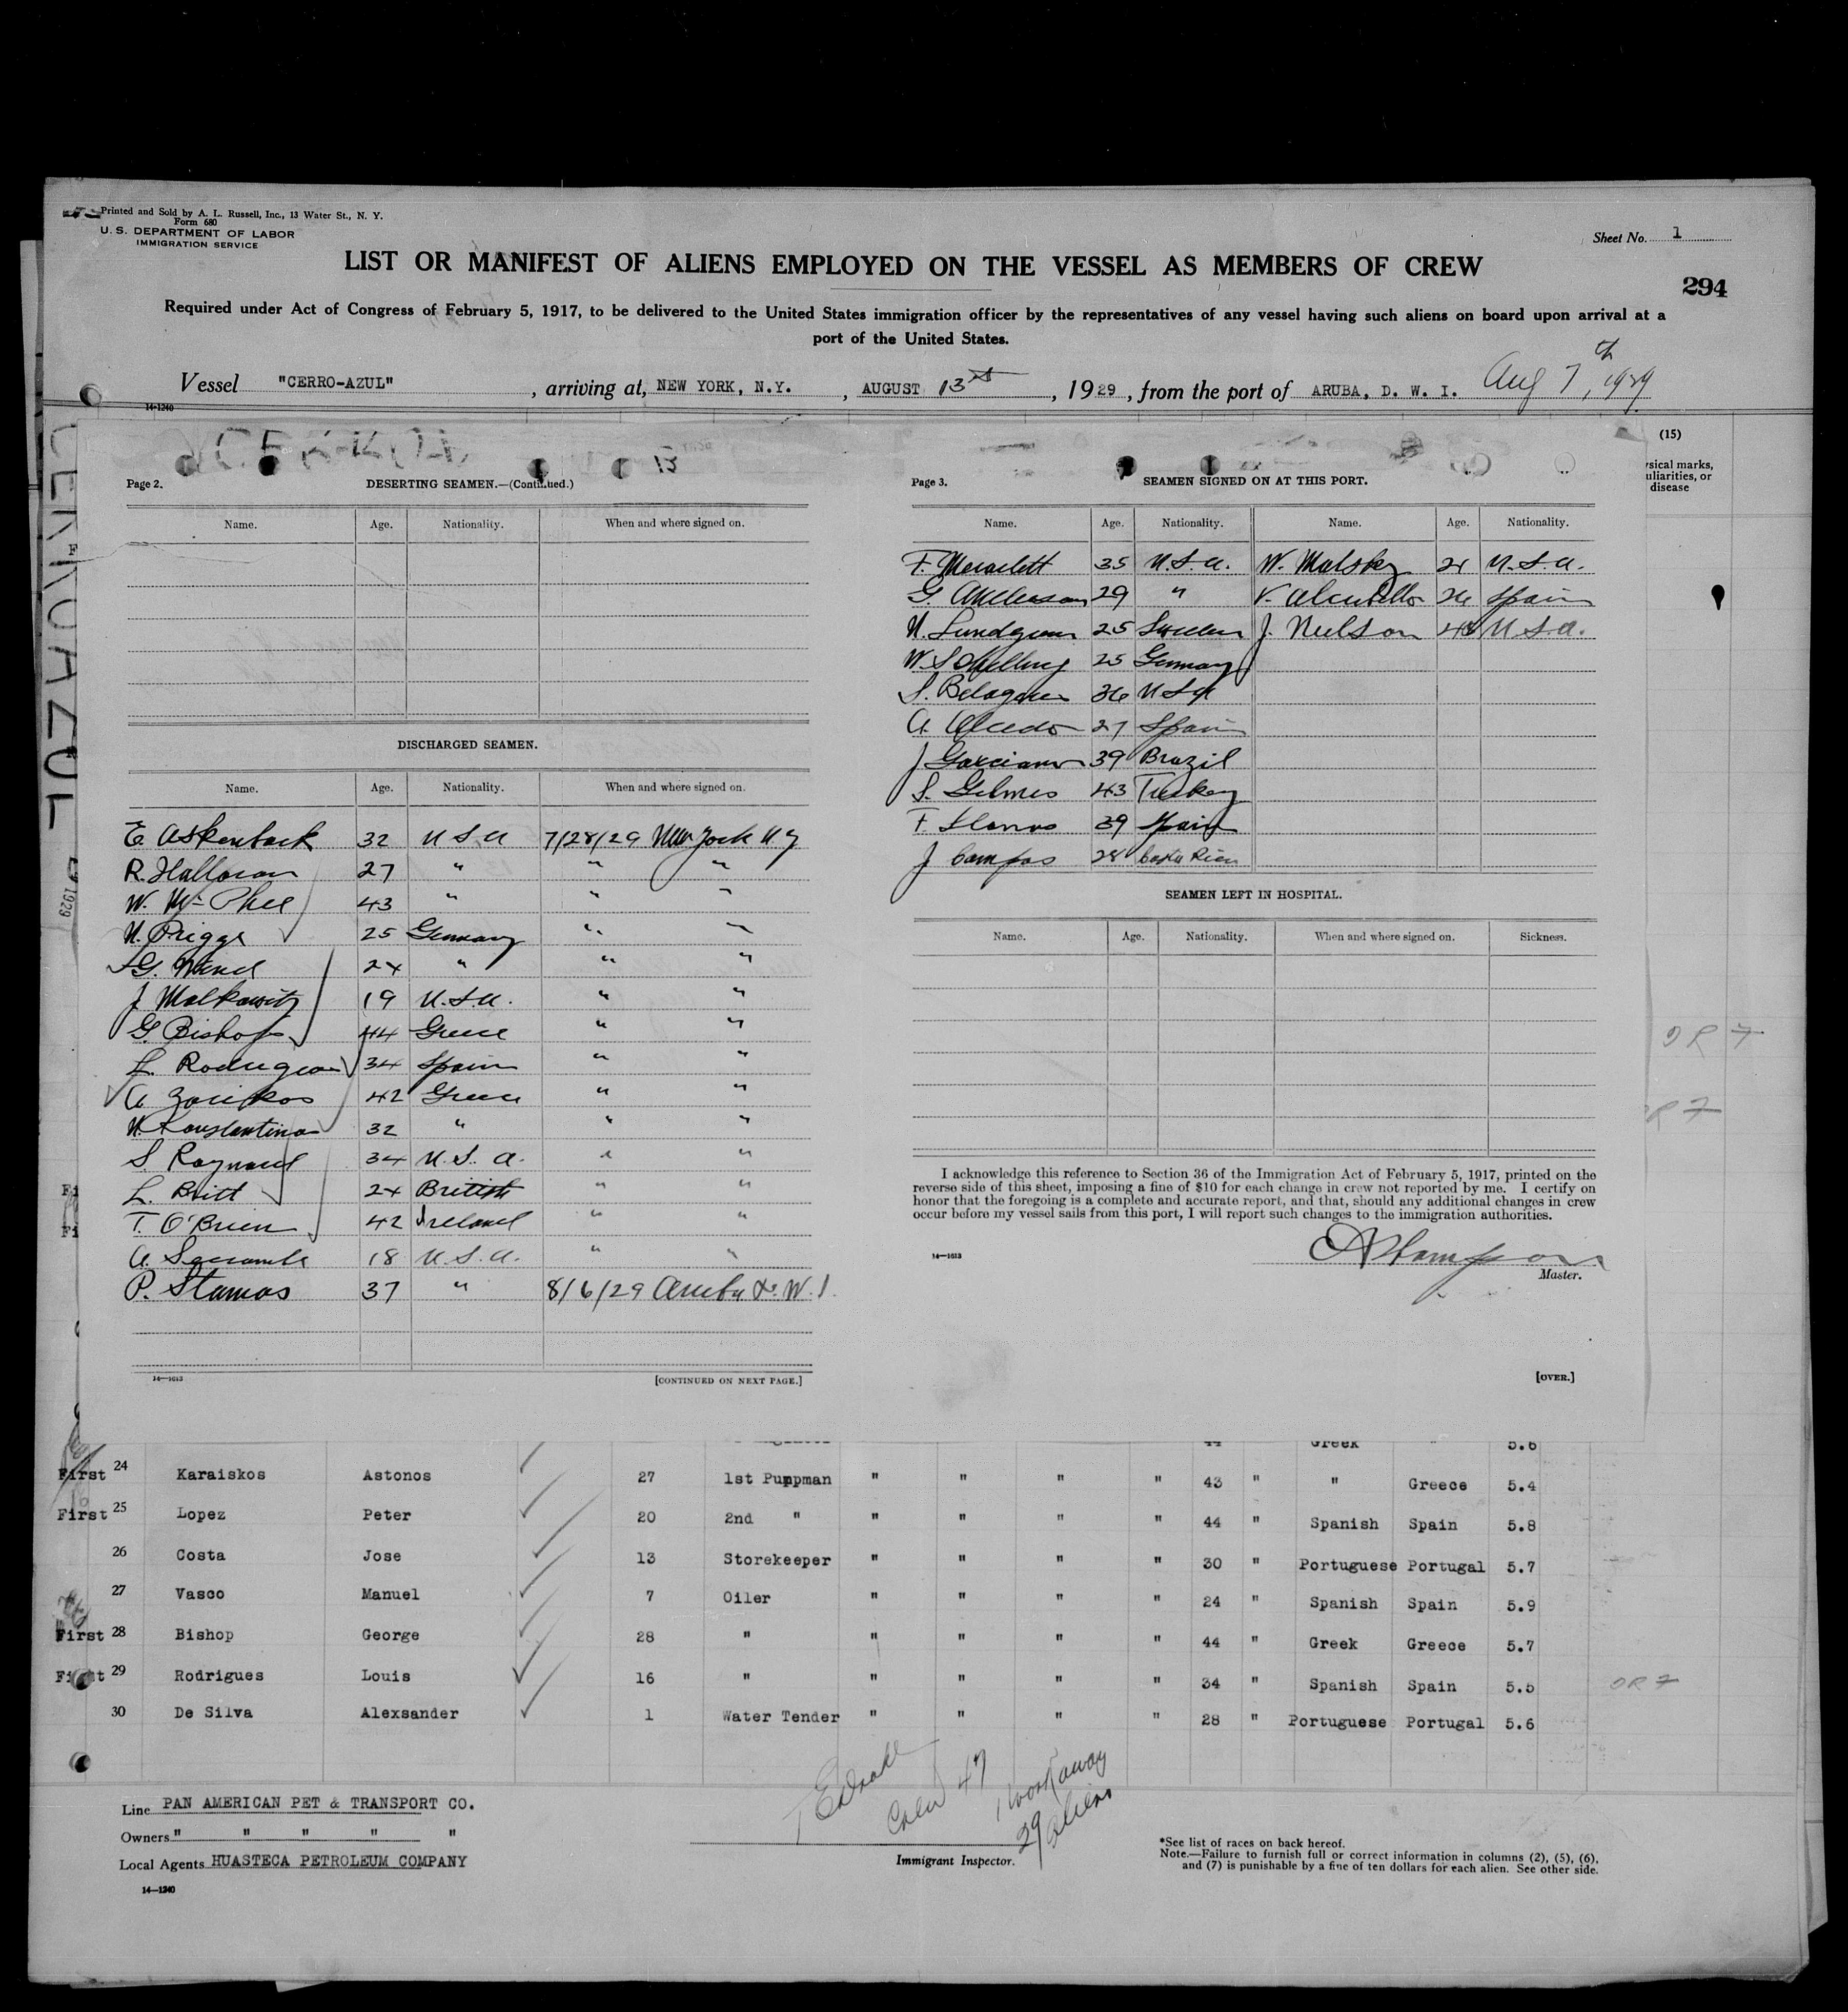 Printed and Sold by A. L. Russell, Inc., 13 Water St., N. Y.
Form 680
U. S. DEPARTMENT OF LABOR
IMMIGRATION SERVICE
Sheet No. 1
LIST OR MANIFEST OF ALIENS EMPLOYED ON THE VESSEL AS MEMBERS OF CREW
294
Required under Act of Congress of February 5, 1917, to be delivered to the United States immigration officer by the representatives of any vessel having such aliens on board upon arrival at a
port of the United States.
Vessel "CERRO-AZUL", arriving at, NEW YORK, N.Y., AUGUST 13th, 1929, from the port of ARUBA, D. W. I. Aug 7th, 1929
14-1240
CERROAZUL
1929
13
(15)
ysical marks,
uliarities, or
disease
Page 2. DESERTING SEAMEN.—(Continued.)
Name. Age. Nationality. When and where signed on.
DISCHARGED SEAMEN.
Name. Age. Nationality. When and where signed on.
E. Askenback 32 U S A 7/28/29 New York N. Y
R. Halloran 27 " " "
W. McPhee 43 " " "
H. Prigge 25 Germany " "
G. 24 " " "
J Malkowitz 19 U.S.A. " "
G. Bishop 44 Greece " "
L. Rodrigues 34 Spain " "
A. Zorikos 42 Greece " "
N. Konstantinos 32 " " "
S. Raynard 34 U.S.A. " "
L. Britt 24 British " "
T. O'Brien 42 Ireland " "
A. 18 U.S.A. " "
P. Stamos 37 " 8/6/29 Aruba D. W. I.
14—1613 [CONTINUED ON NEXT PAGE.]
Page 3. SEAMEN SIGNED ON AT THIS PORT.
Name. Age. Nationality. Name. Age. Nationality.
F. 35 U.S.A. W. Malsky 21 U.S.A.
G. Anderson 29 " V. 26 Spain
N. Lundgren 25 Sweden J. Neilson 43 U.S.A.
W. Schelling 25 Germany
S. 36 U S A
A. 27 Spain
J Garciano 39 Brazil
S. Gelmes 43 Turkey
F. Llanos 39 Spain
J Campos 28 Costa Rica
SEAMEN LEFT IN HOSPITAL.
Name. Age. Nationality. When and where signed on. Sickness.
I acknowledge this reference to Section 36 of the Immigration Act of February 5, 1917, printed on the
reverse side of this sheet, imposing a fine of $10 for each change in crew not reported by me. I certify on
honor that the foregoing is a complete and accurate report, and that, should any additional changes in crew
occur before my vessel sails from this port, I will report such changes to the immigration authorities.
14—1613
Master.
[OVER.]
OR 7
R 7
44 Greek " 5.6
First 24 Karaiskos Astonos 27 1st Pumpman " " " " 43 " " Greece 5.4
First 25 Lopez Peter 20 2nd " " " " " 44 " Spanish Spain 5.8
26 Costa Jose 13 Storekeeper " " " " 30 " Portuguese Portugal 5.7
27 Vasco Manuel 7 Oiler " " " " 24 " Spanish Spain 5.9
First 28 Bishop George 28 " " " " " 44 " Greek Greece 5.7
First 29 Rodrigues Louis 16 " " " " " 34 " Spanish Spain 5.5 OR 7
30 De Silva Alexsander 1 Water Tender " " " " 28 " Portuguese Portugal 5.6
Crew 47
1 workaway
29 aliens
Line PAN AMERICAN PET & TRANSPORT CO.
Owners " " " " "
Local Agents HUASTECA PETROLEUM COMPANY
14—1240
Immigrant Inspector.
*See list of races on back hereof.
Note.—Failure to furnish full or correct information in columns (2), (5), (6),
and (7) is punishable by a fine of ten dollars for each alien. See other side.